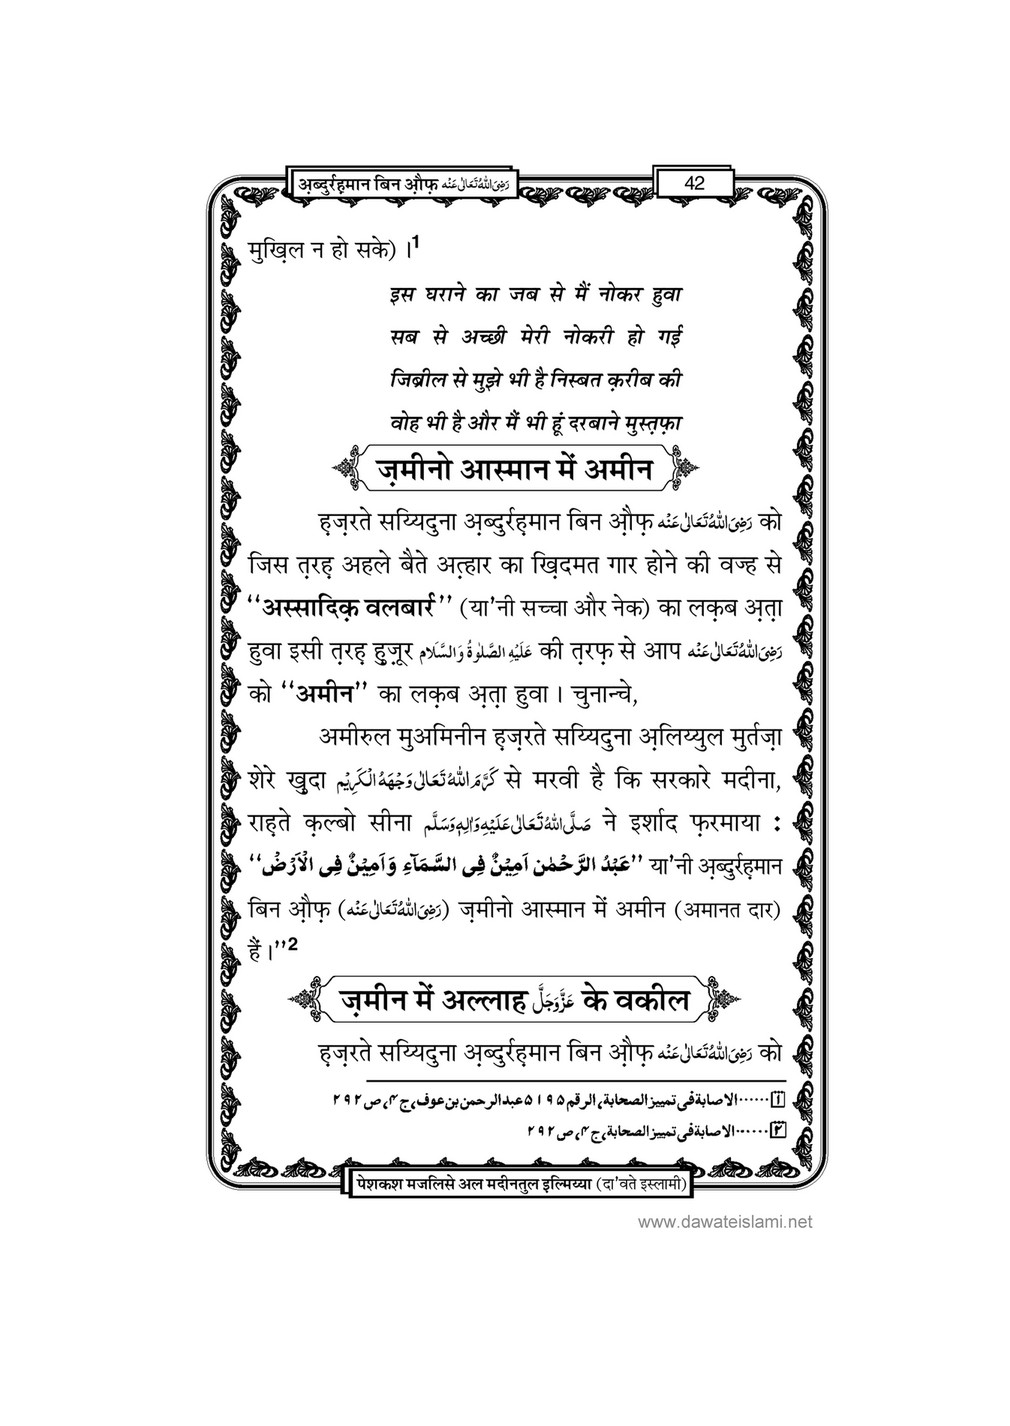 अ़ब्दुर्रह़मान बिन औ़फ़ رَضِیَ اللہُ تَعَالٰی عَنْہ
42
मुख़िल न हो सके) ।1
इस घराने का जब से मैं नोकर हुवा
सब से अच्छी मेरी नोकरी हो गई
जिब्रील से मुझे भी है निस्बत क़रीब की
वोह भी है और मैं भी हूं दरबाने मुस्त़फ़ा
ज़मीनो आस्मान में अमीन
ह़ज़रते सय्यिदुना अ़ब्दुर्रह़मान बिन औ़फ़ رَضِیَ اللہُ تَعَالٰی عَنْہ को
जिस त़रह़ अहले बैते अत़्हार का ख़िदमत गार होने की वज्ह से
‘‘अस्सादिक़ वलबार्र’’ (या’नी सच्चा और नेक) का लक़ब अ़त़ा
हुवा इसी त़रह़ हुज़ूर عَلَیْہِ الصَّلٰوۃُ وَالسَّلَام की त़रफ़ से आप رَضِیَ اللہُ تَعَالٰی عَنْہ
को ‘‘अमीन’’ का लक़ब अ़त़ा हुवा । चुनान्चे,
अमीरुल मुअमिनीन ह़ज़रते सय्यिदुना अ़लिय्युल मुर्तज़ा
शेरे ख़ुदा کَرَّمَ اللہُ تَعَالٰی وَجْہَہُ الْکَرِیْم से मरवी है कि सरकारे मदीना,
राह़ते क़ल्बो सीना صَلَّی اللہُ تَعَالٰی عَلَیْہِ وَاٰلِہٖ وَسَلَّم ने इर्शाद फ़रमाया :
‘‘عَبْدُ الرَّحْمٰن اَمِیْنٌ فِی السَّمَآءِ وَاَمِیْنٌ فِی الْاَرْضْ’’ या’नी अ़ब्दुर्रह़मान
बिन औ़फ़ (رَضِیَ اللہُ تَعَالٰی عَنْہ) ज़मीनो आस्मान में अमीन (अमानत दार)
हैं ।’’2
ज़मीन में अल्लाह عَزَّوَجَلَّ के वकील
ह़ज़रते सय्यिदुना अ़ब्दुर्रह़मान बिन औ़फ़ رَضِیَ اللہُ تَعَالٰی عَنْہ को
۱......الاصابة فی تمییز الصحابة، الرقم ۵۱۹۵ عبد الرحمن بن عوف، ج۴، ص۲۹۲
۲......الاصابة فی تمییز الصحابة، ج۴، ص۲۹۲
पेशकश मजलिसे अल मदीनतुल इल्मिय्या (दा’वते इस्लामी)
www.dawateislami.net